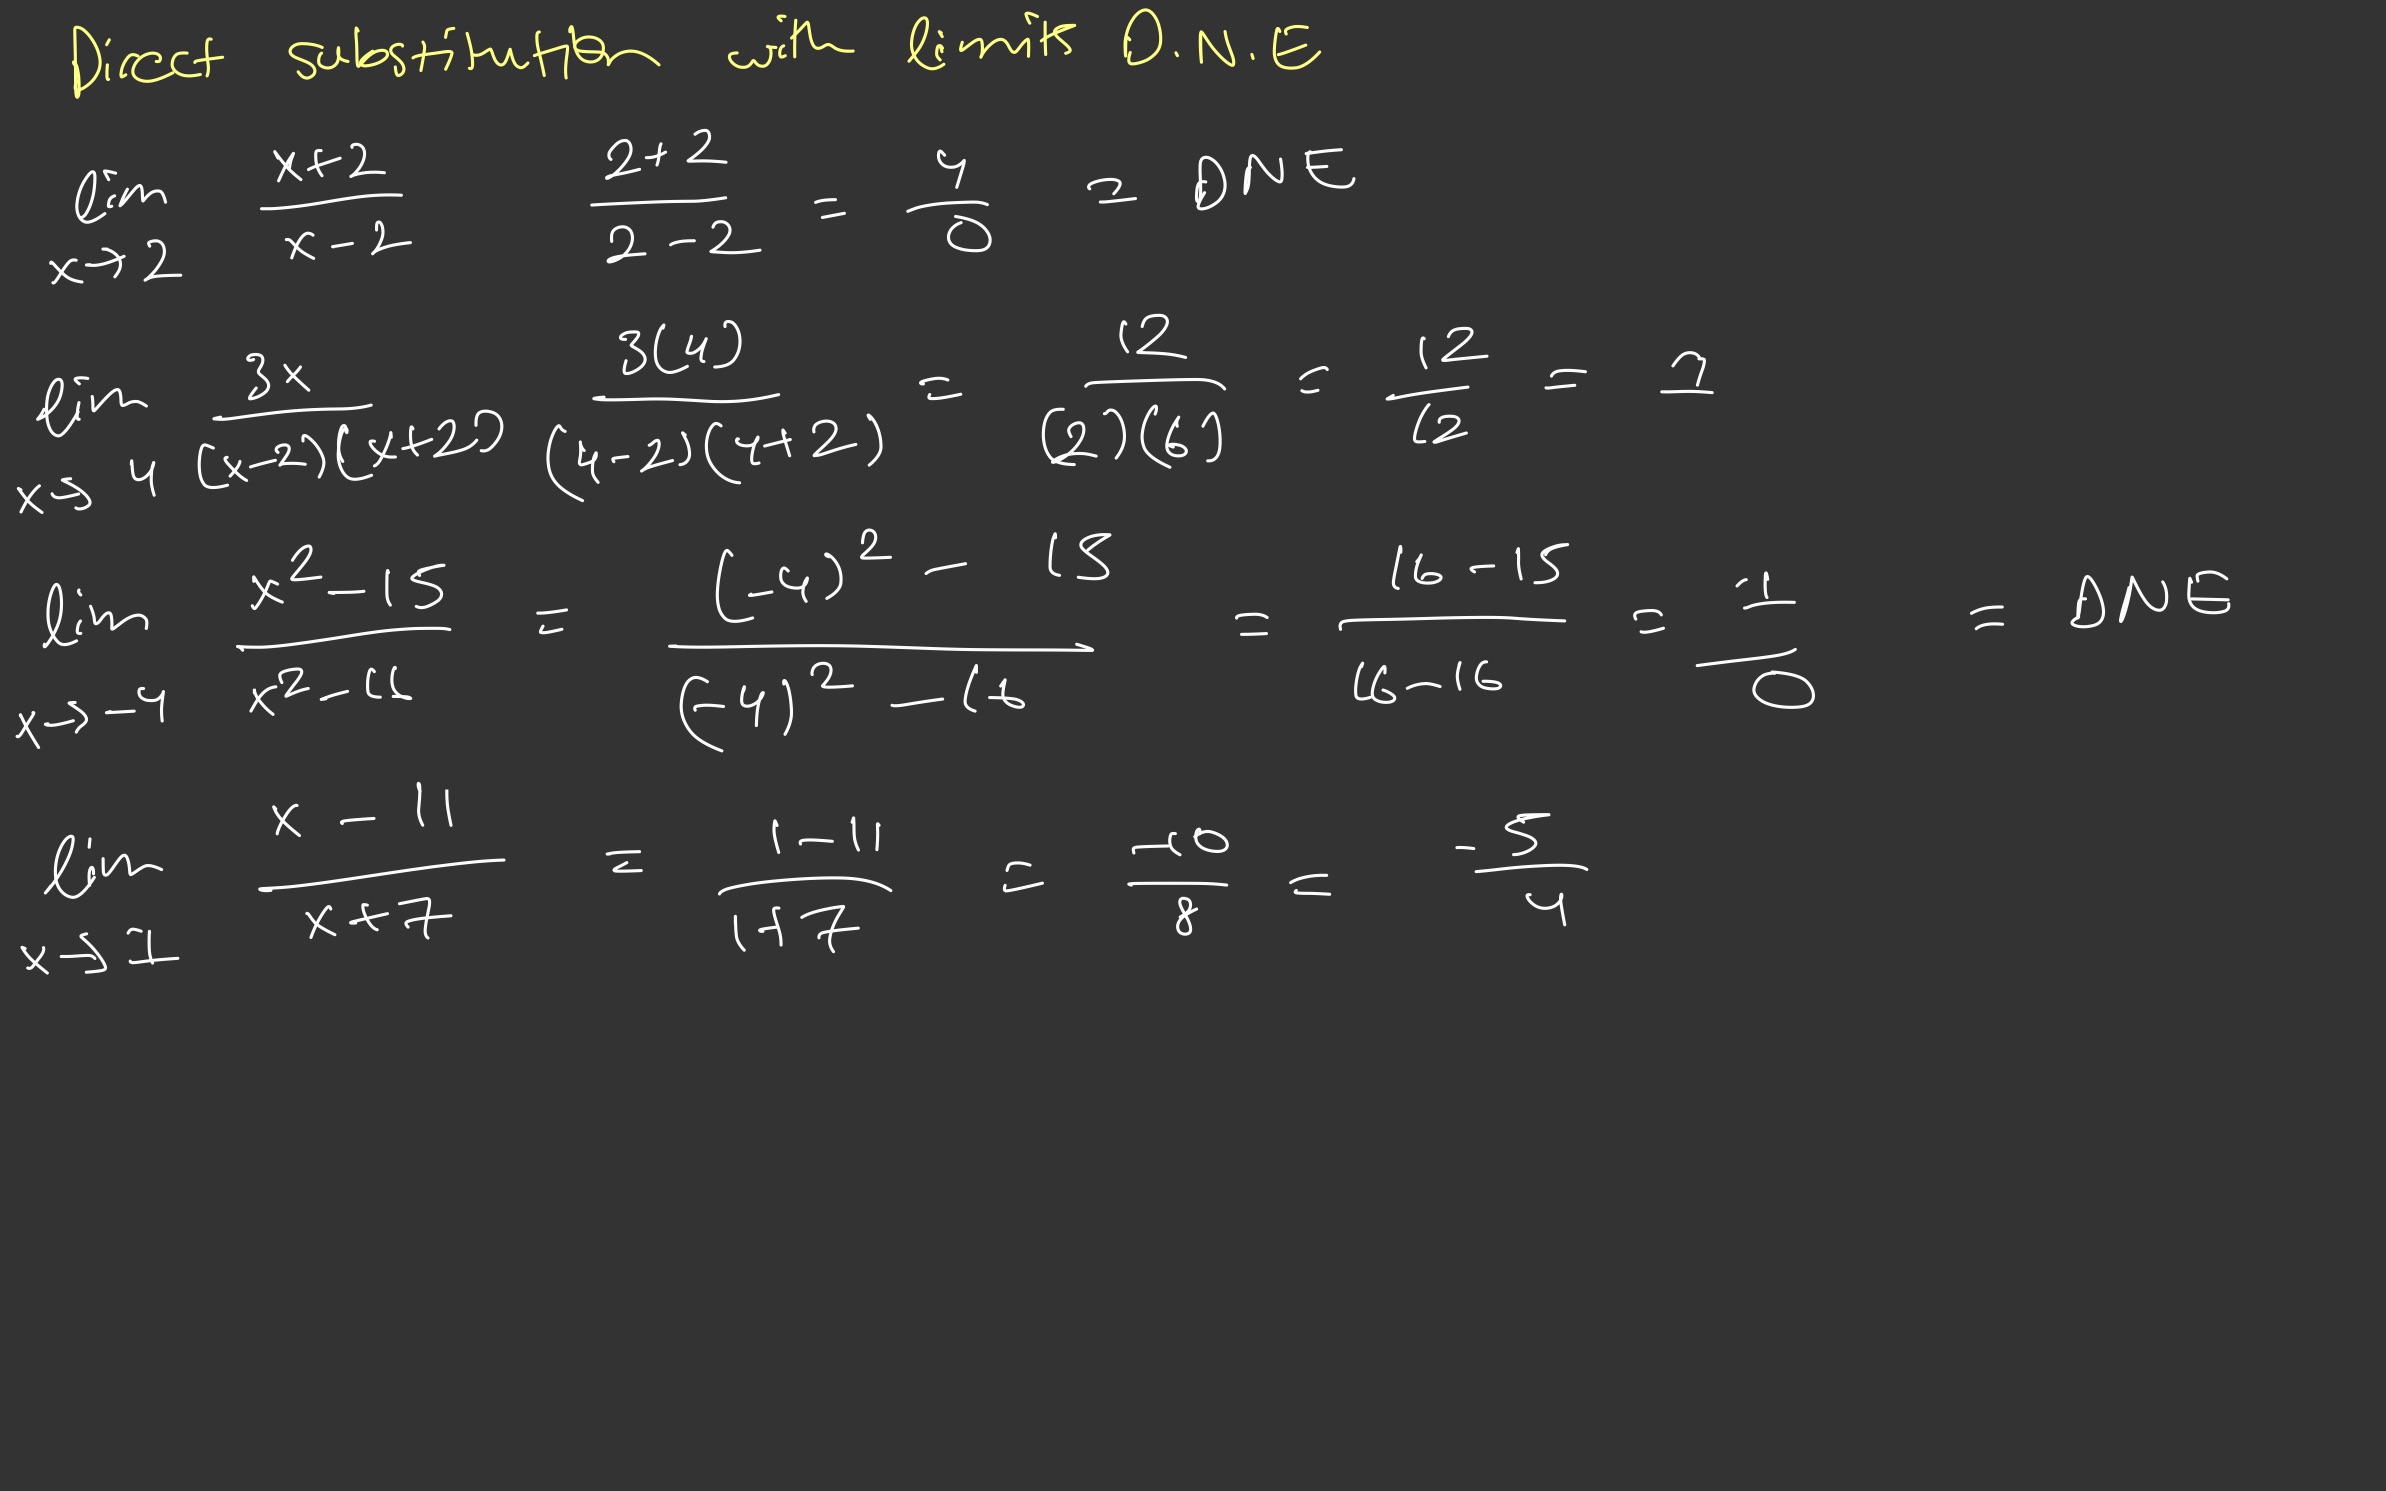 Direct substitution with limits D.N.E
lim x→2 (x+2)/(x-2) (2+2)/(2-2) = 4/0 = DNE
lim x→4 3x/((x-2)(x+2)) 3(4)/((4-2)(4+2)) = 12/((2)(6)) = 12/12 = 1
lim x→-4 (x²-15)/(x²-16) = ((-4)²-15)/((-4)²-16) = (16-15)/(16-16) = 1/0 = DNE
lim x→1 (x-11)/(x+7) = (1-11)/(1+7) = -10/8 = -5/4